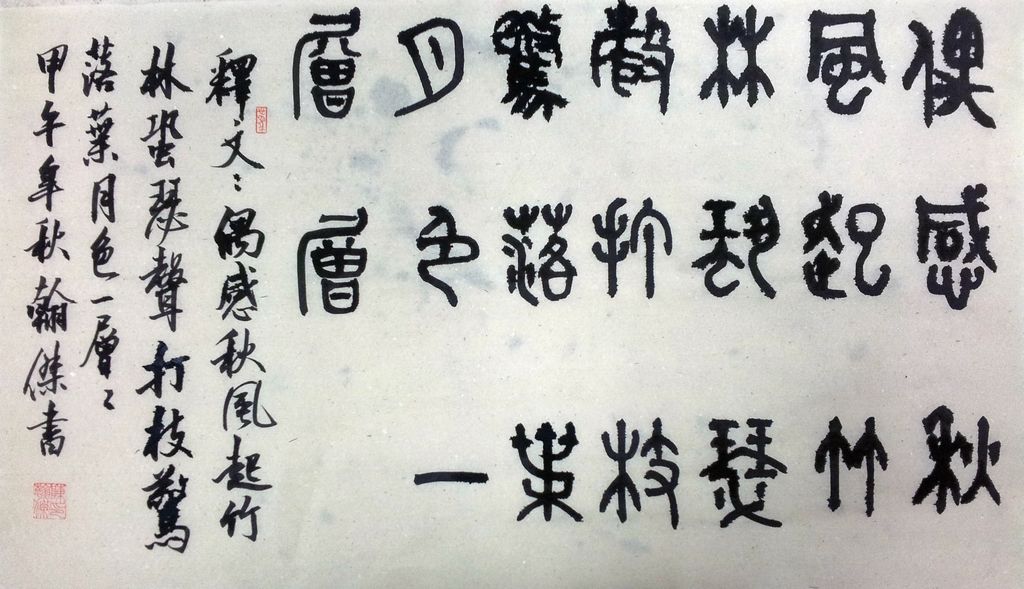 偶感秋
風起竹
林蛩瑟
聲打枝
驚落葉
月色一
層層
釋文：偶感秋風起竹
林蛩瑟聲打枝驚
落葉月色一層〻
甲午年秋翰傑書